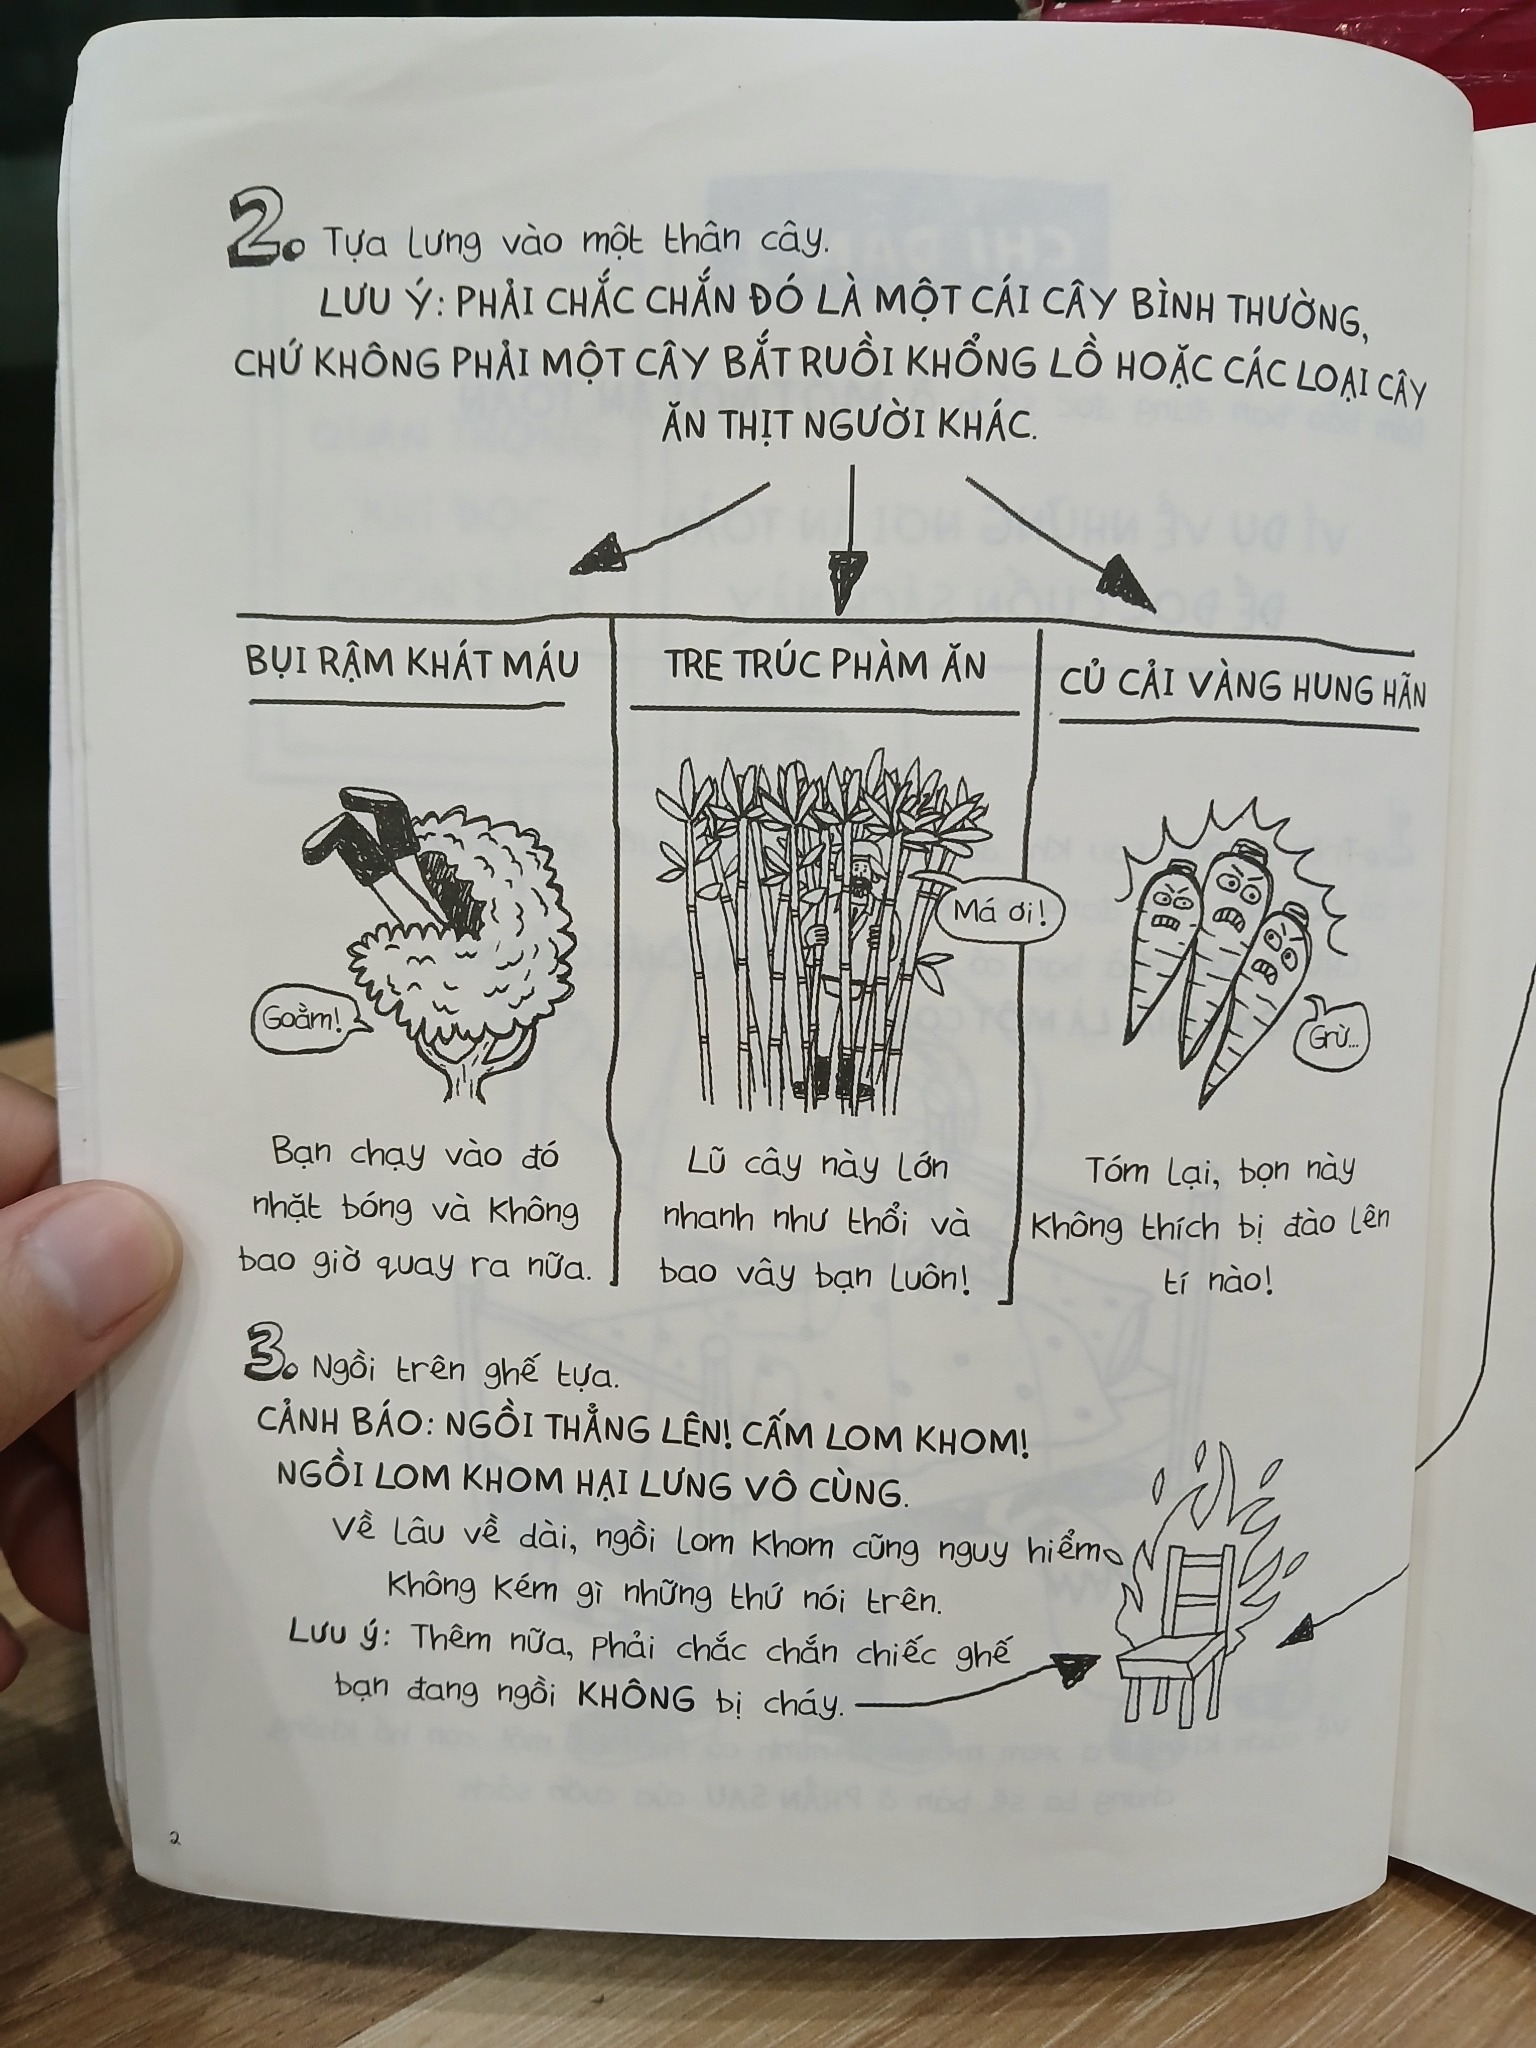 2. Tựa lưng vào một thân cây.
LƯU Ý: PHẢI CHẮC CHẮN ĐÓ LÀ MỘT CÁI CÂY BÌNH THƯỜNG,
CHỨ KHÔNG PHẢI MỘT CÂY BẮT RUỒI KHỔNG LỒ HOẶC CÁC LOẠI CÂY
ĂN THỊT NGƯỜI KHÁC.
BỤI RẬM KHÁT MÁU
Goằm!
Bạn chạy vào đó
nhặt bóng và không
bao giờ quay ra nữa.
TRE TRÚC PHÀM ĂN
Má ơi!
Lũ cây này lớn
nhanh như thổi và
bao vây bạn luôn!
CỦ CẢI VÀNG HUNG HÃN
Grừ...
Tóm lại, bọn này
không thích bị đào lên
tí nào!
3. Ngồi trên ghế tựa.
CẢNH BÁO: NGỒI THẲNG LÊN! CẤM LOM KHOM!
NGỒI LOM KHOM HẠI LƯNG VÔ CÙNG.
Về lâu về dài, ngồi lom khom cũng nguy hiểm
không kém gì những thứ nói trên.
Lưu ý: Thêm nữa, phải chắc chắn chiếc ghế
bạn đang ngồi KHÔNG bị cháy.
2